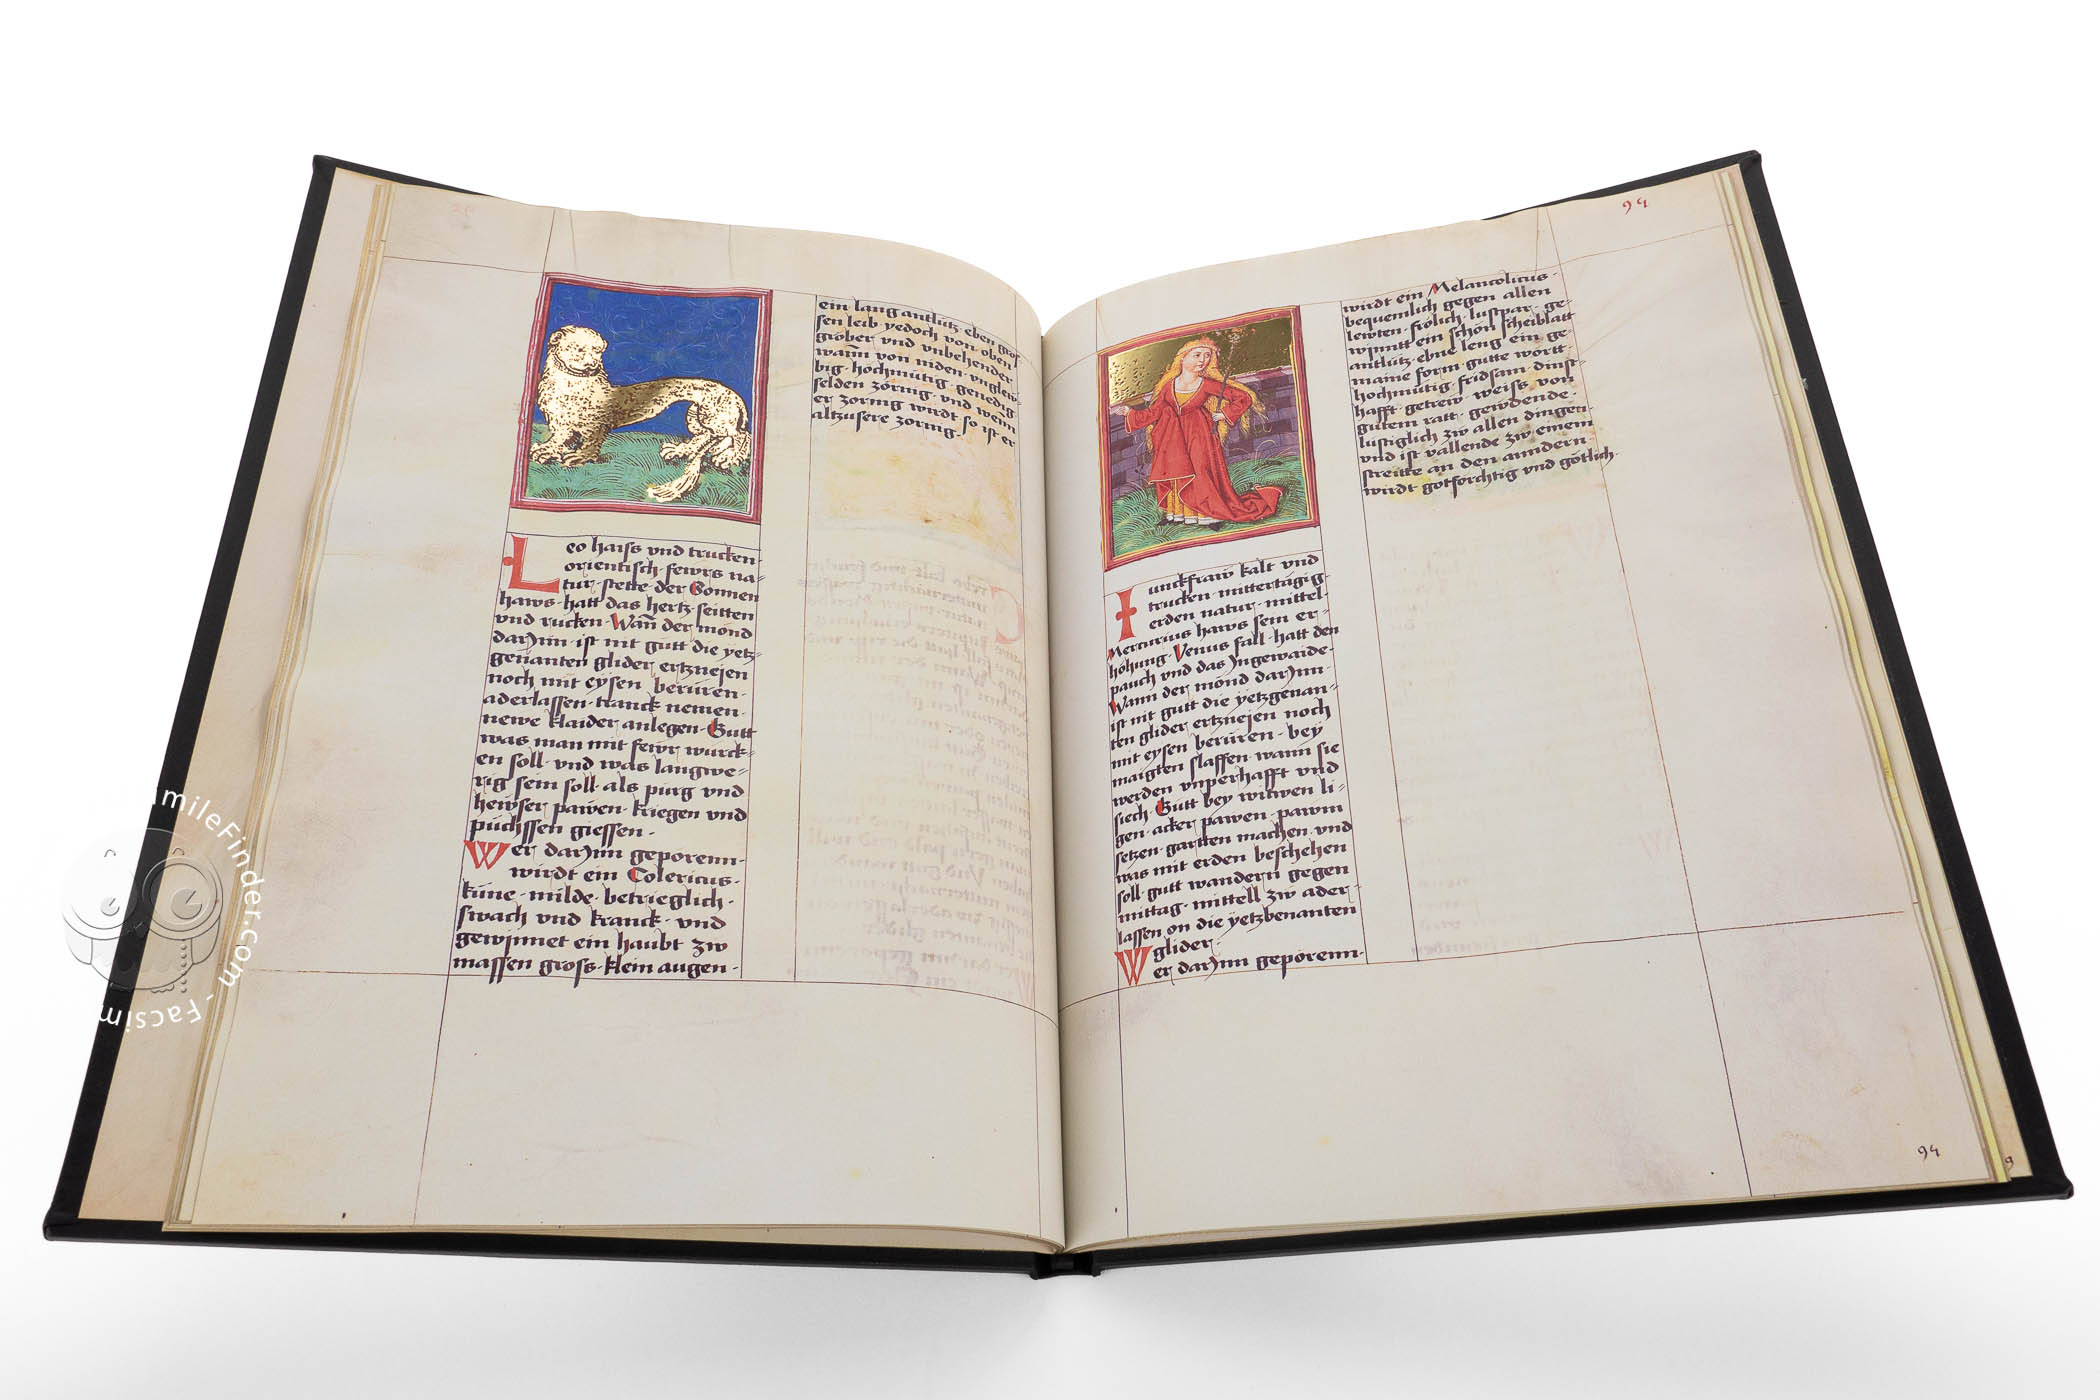 Leo haiss vnd trucken·
orientisch·fewrs na=
tur·stette·der Sonnen
haws·hatt das hertz·seitten
vnd rucken·Wan̄ der mond
darjnn·ist nit gutt die yetz=
genanten glider ertznejen
noch mit eysen berüren·
aderlassen·tranck nemen·
newe klaider anlegen·Gutt
was man mit fewr wurck=
en soll·vnd was langwe=
rig sein soll·als purg vnd
hewser pawen·kriegen vnd
püchssen giessen·
Wer darjnn geporenn·
wirdt ein Colericus·
küne·milde·betrieglich·
swach vnd kranck·vnd
gewjnnet ein haubt zw
massen gross·klein augen·
ein lang antlütz·eben gros
sen leib·yedoch von oben
gröber vnd vnbehender
wan̄n von niden·vnglew=
big·hochmütig·genedig·
selden zornig·vnd wenn
er zornig wirdt so ist er
altzusere zornig·
94
Iunckfraw kalt vnd
trucken·mittertägig·
erden natur·mittel·
Mercurius haws sein er=
höhung·Venus fall·hatt den
pauch vnd das Jngewaide·
Wann der mond darjnn·
ist nit gutt die yetzgenan=
ten glider ertznejen noch
mit eysen berüren·bey
maigten slaffen·wann sie
werden vnperhafft vnd
siech·Gutt bey witwen li=
gen·acker pawen·pawm
setzen·gartten machen·vnd
was mit erden beschehen
soll·gutt wandern gegen
mittag·mittell zw ader·
lassen on die yetzbenanten
glider·
Wer darjnn geporenn·
wirdt ein Melancolicus·
bequemlich gegen allen
lewten·frölich·lustpar·ge=
wjnntt ein schön scheiblatt
antlütz·ebne leng ein ge=
maine form·gutte wortt·
hochmütig·fridsam·dinst=
hafft·getrew·weiss·von
gutem ratt·gewdende·
lustiglich zw allen dingen·
vnd ist vallende zw einem
streitte an den anndern·
wirdt gotforchtig vnd götlich·
94
FacsimileFinder.com - Facsim